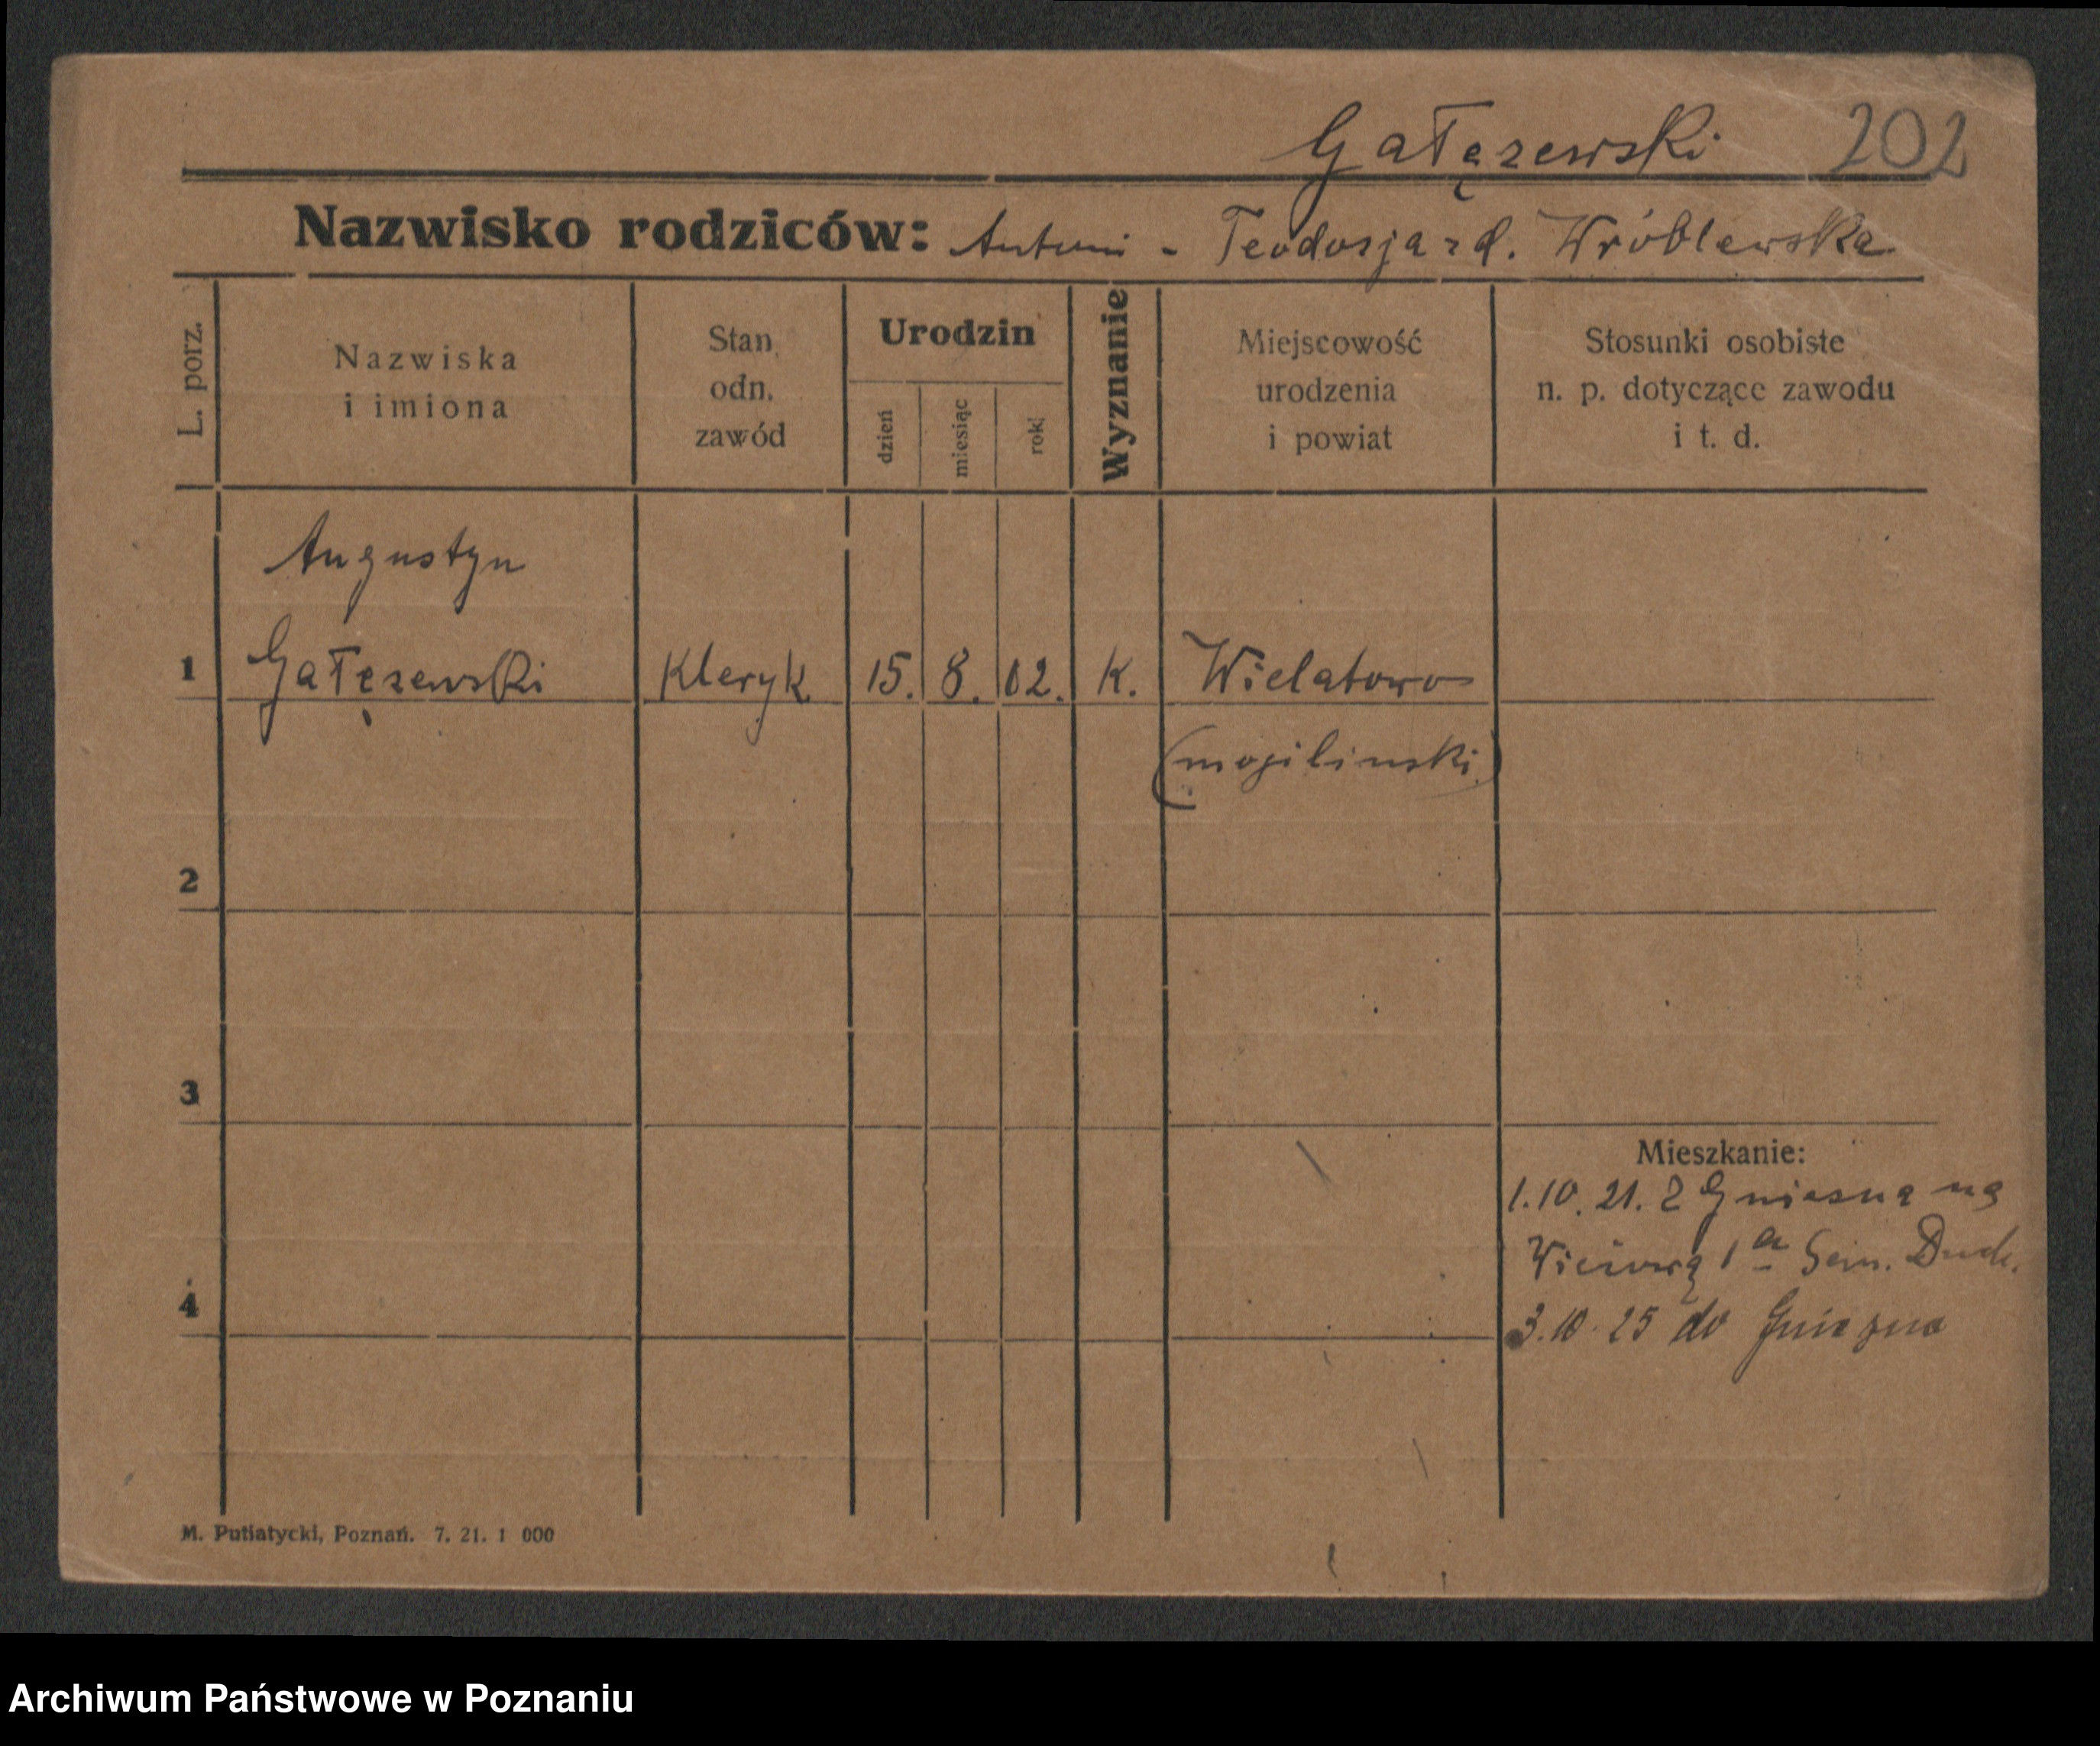 Gałęzewski 202
Nazwisko rodziców: Antoni - Teodozja z d. Wróblewska
L. porz.
Nazwiska
i imiona
Stan
odn.
zawód
Urodzin
dzień
miesiąc
rok
Wyznanie
Miejscowość
urodzenia
i powiat
Stosunki osobiste
n. p. dotyczące zawodu
i t. d.
Augustyn
1 Gałęzewski Kleryk 15. 8. 02. K. Wielatowo
(mogilinski)
2
3
Mieszkanie:
1. 10. 21. Z Gniezna na
Wieżową 1a Sem. Duch.
4 3. 10. 25 do Gniezna
M. Putiatycki, Poznań. 7. 21. 1 000
Archiwum Państwowe w Poznaniu